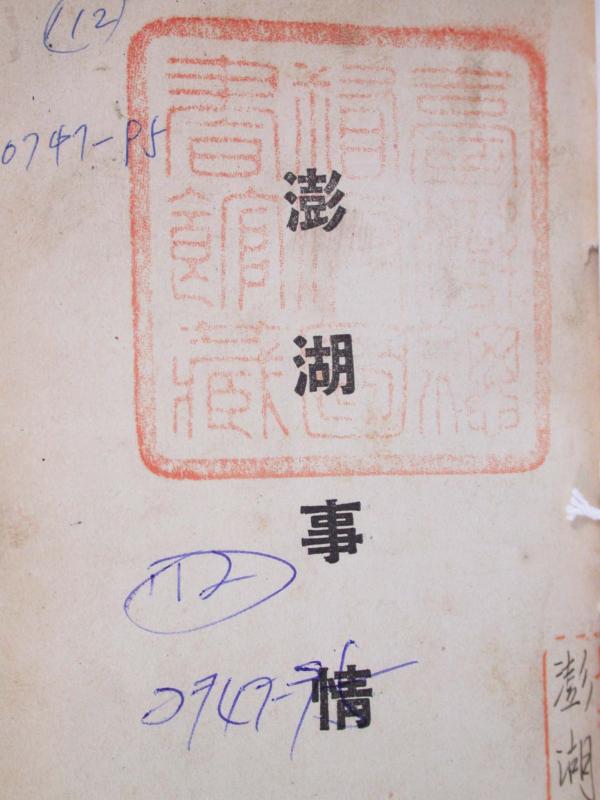 (12)
0747-95
臺灣總
督府圖
書館藏
澎湖事情
112
0747-95
澎湖